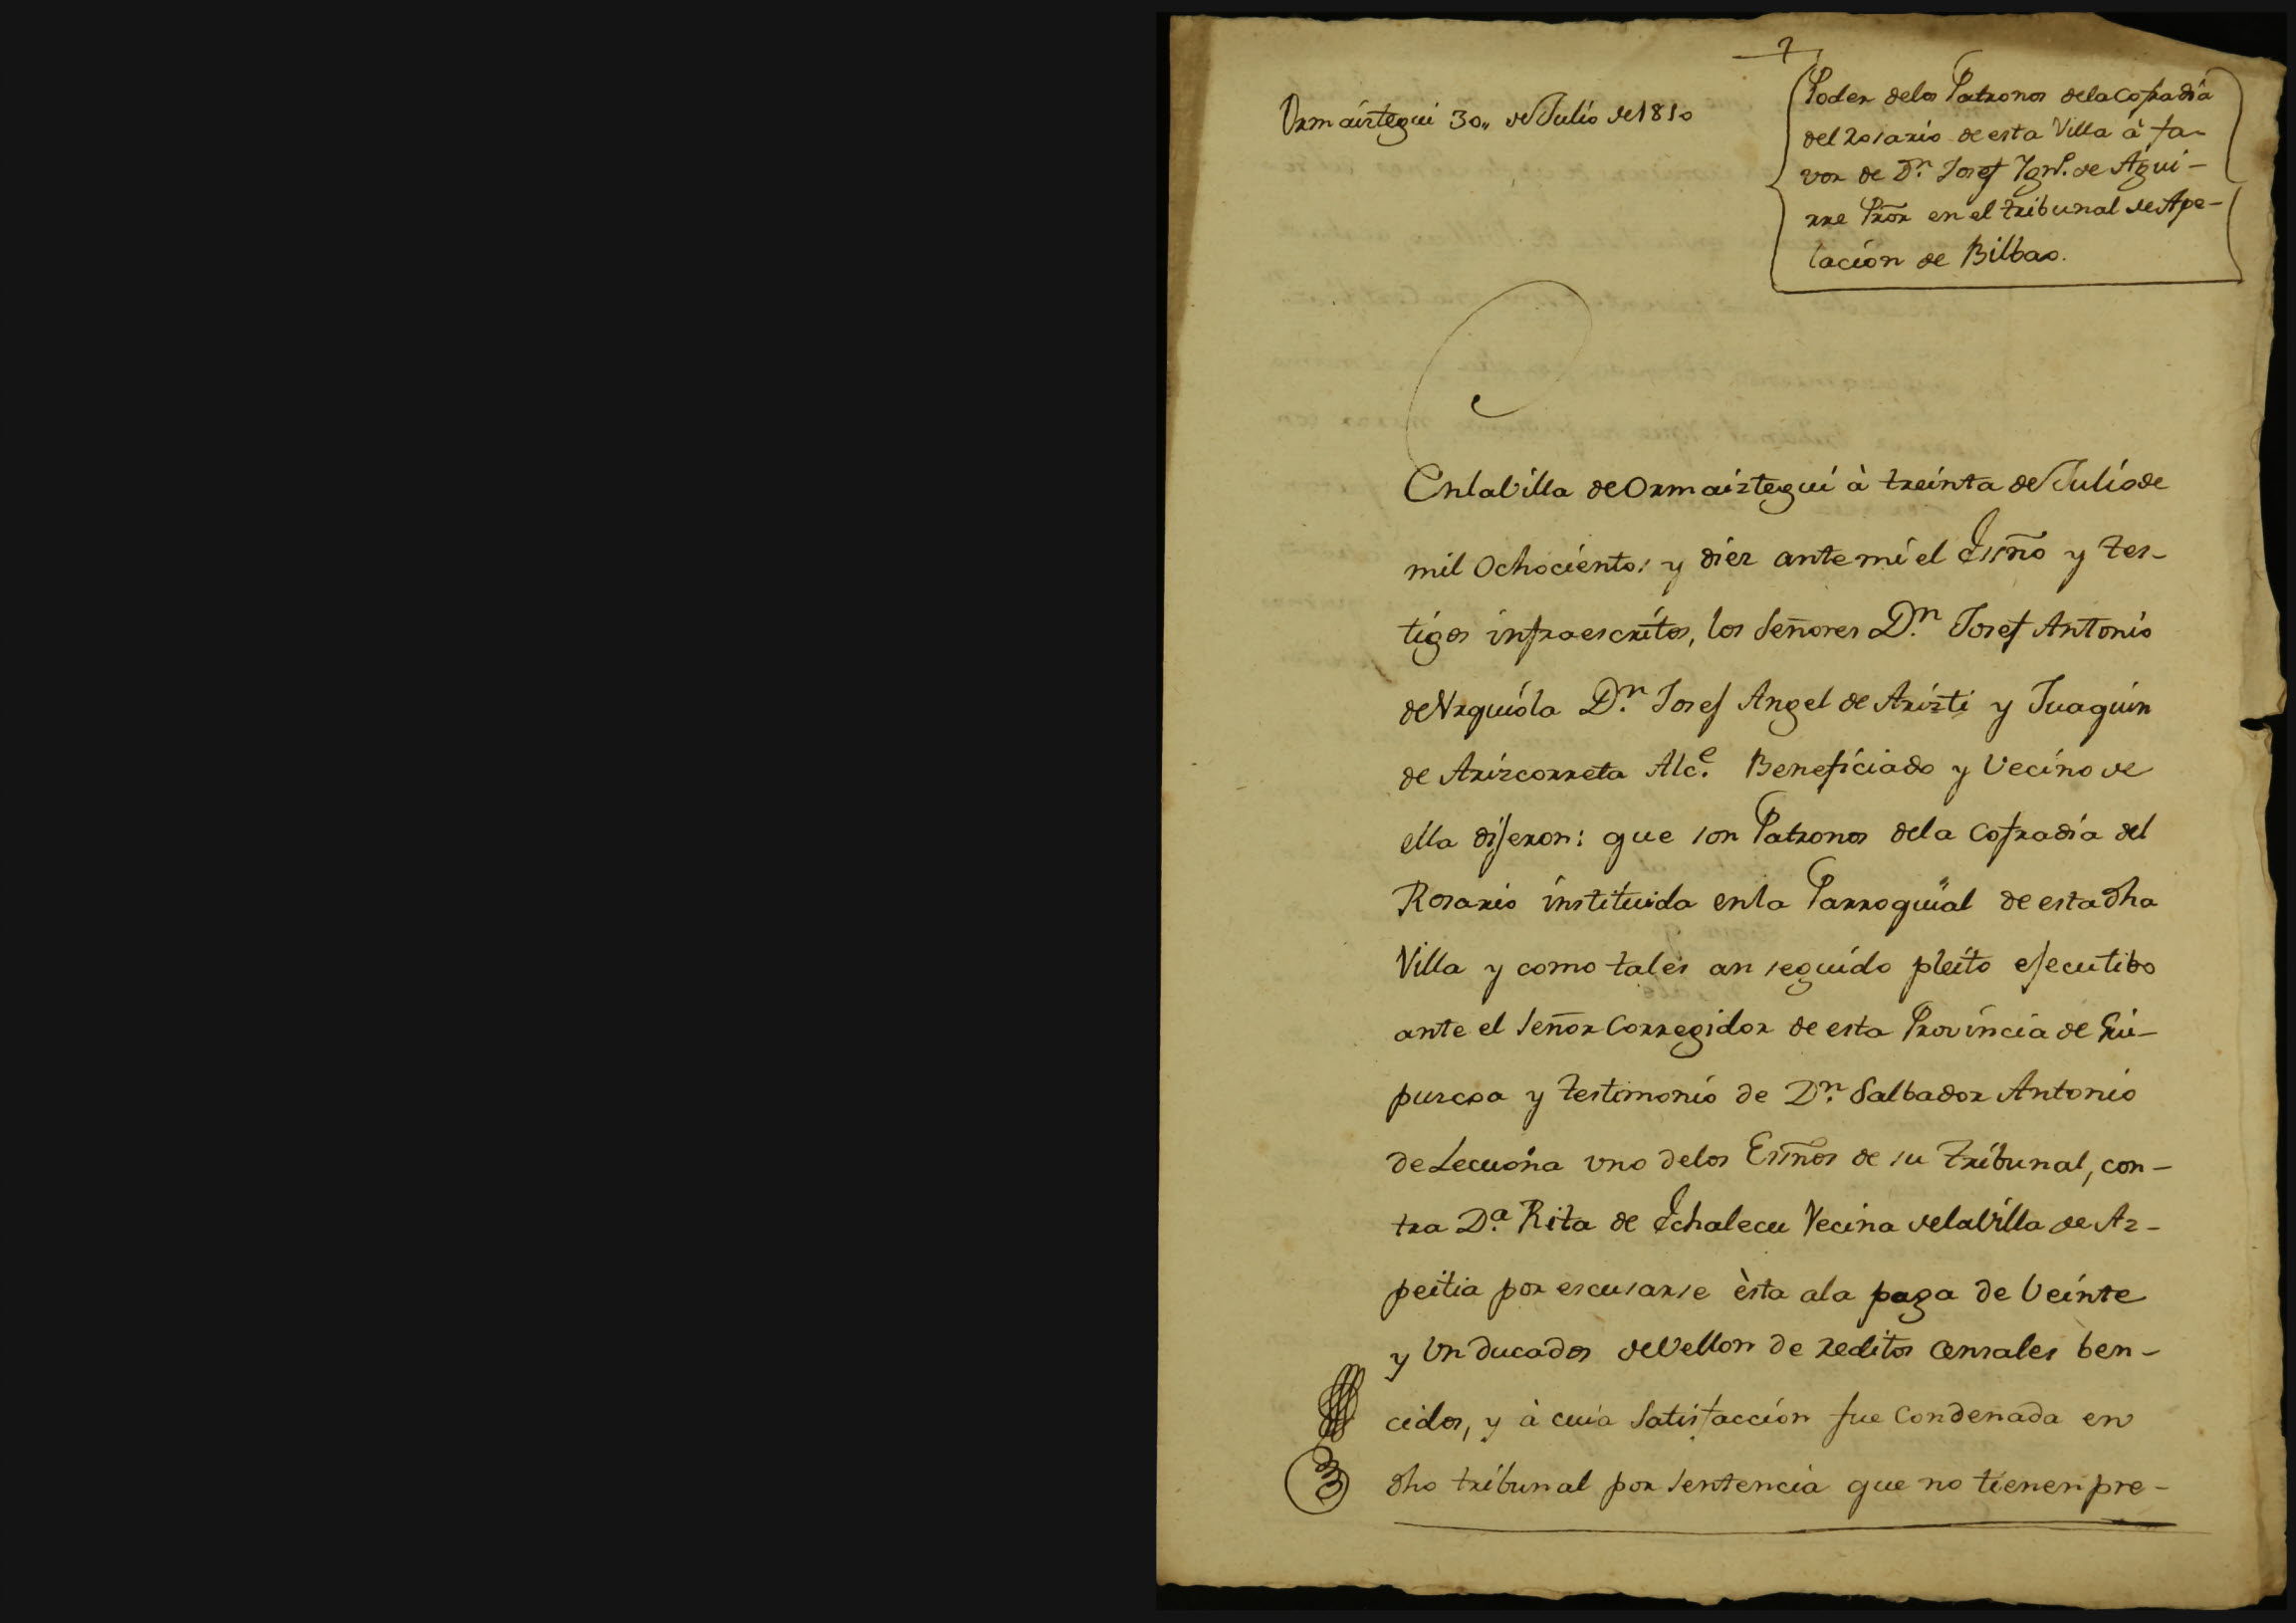 Ormaiztegui 30,, de Julio de 1810
Poder delos Patronos dela cofradia
del Rosario de esta Villa à fa-
vor de Dn. Josef Ign.º de Agui-
rre Prõr en el tribunal de Ape-
lación de Bilbao.
En la Villa de Ormaiztegui à treinta de Julio de
mil Ochocientos y diez ante mi el Esño y tes-
tigos infraescritos, los Señores D.n Josef Antonio
de Urquiola D.n Josef Angel de Arizti y Juaquin
de Arizcorreta Alc.e Beneficiado y Vecino de
ella dijeron: que son Patronos dela cofradia del
Rosario instituida enla Parroquial de esta dha
Villa y como tales an seguido pleito ejecutibo
ante el Señor Corregidor de esta Provincia de Gui-
puzcoa y testimonio de D.n Salbador Antonio
de Lecuona uno delos Esños de su tribunal, con-
tra D.a Rita de Echalecu Vecina dela Villa de Az-
peitia por escusarse èsta ala paga de Veinte
y Un ducados de Vellon de reditos Censales ben-
cidos, y à cuia Satisfacción fue Condenada en
dho tribunal por Sentencia que no tienen pre-